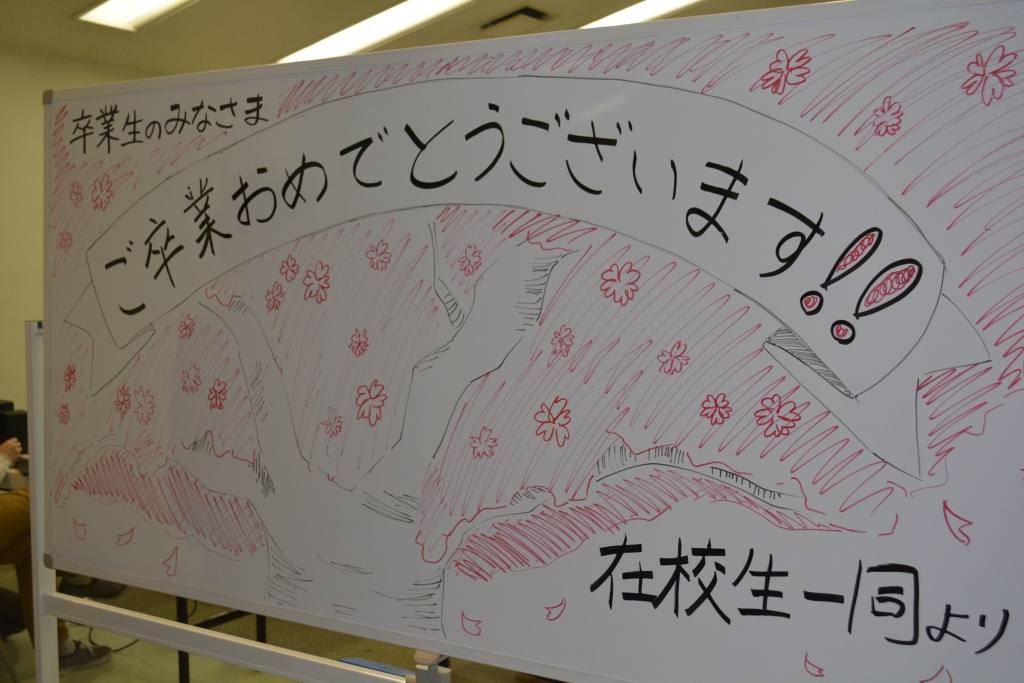 卒業生のみなさま
ご卒業おめでとうございます!!
在校生一同より